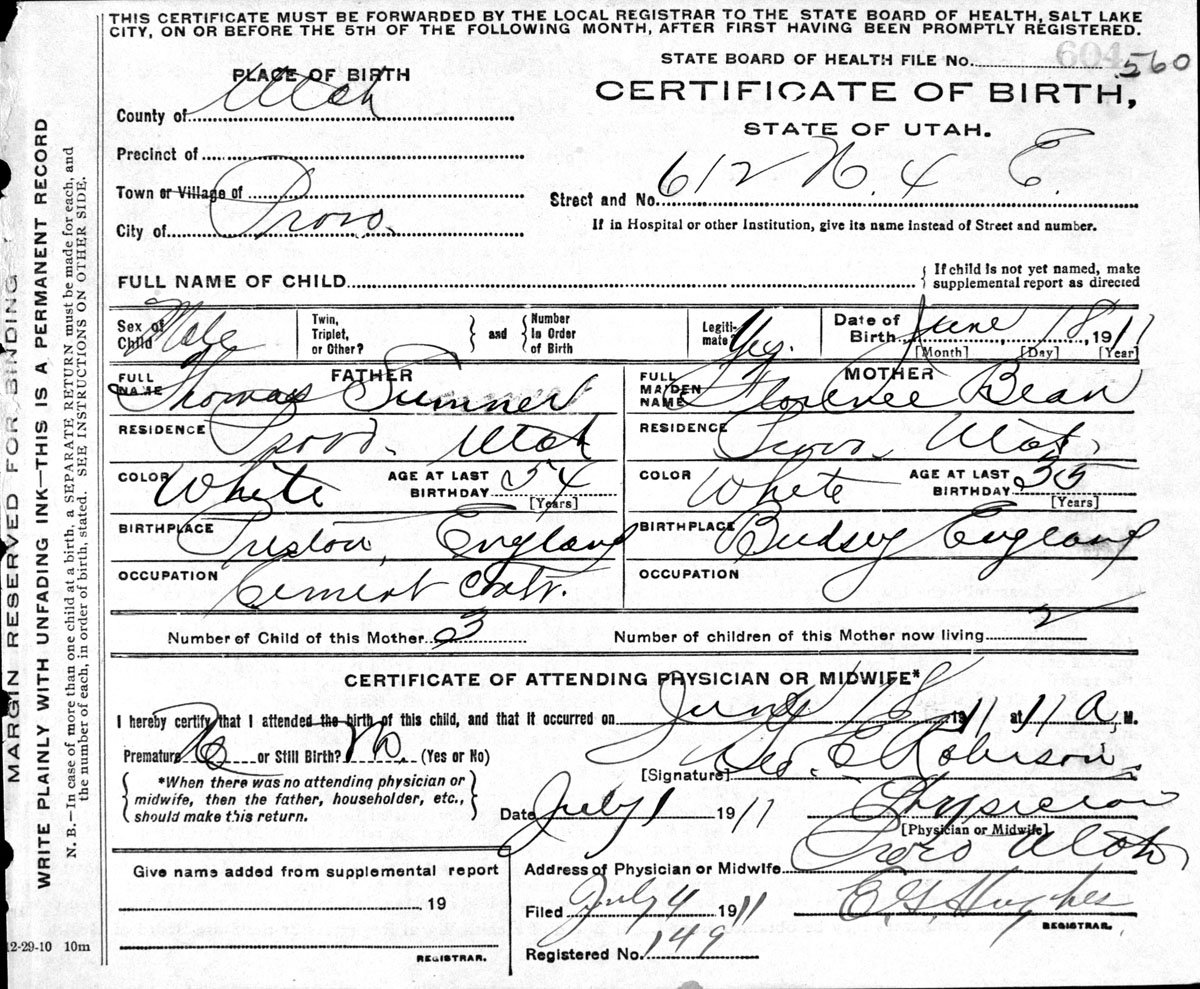 THIS CERTIFICATE MUST BE FORWARDED BY THE LOCAL REGISTRAR TO THE STATE BOARD OF HEALTH, SALT LAKE
CITY, ON OR BEFORE THE 5TH OF THE FOLLOWING MONTH, AFTER FIRST HAVING BEEN PROMPTLY REGISTERED.
604
STATE BOARD OF HEALTH FILE NO. 560
PLACE OF BIRTH
CERTIFICATE OF BIRTH,
STATE OF UTAH.
County of Utah
Precinct of
Town or Village of
City of Provo.
Street and No. 612 N. 4 E.
If in Hospital or other Institution, give its name instead of Street and number.
FULL NAME OF CHILD
{ If child is not yet named, make
supplemental report as directed
Sex of Child Male
Twin, Triplet, or Other? } and { Number in Order of Birth
Legitimate? Yes.
Date of Birth June 18, 1911
[Month] [Day] [Year]
FATHER
FULL NAME Thomas Sumner
RESIDENCE Provo. Utah
COLOR White AGE AT LAST BIRTHDAY 54 [Years]
BIRTHPLACE Preston, England
OCCUPATION Cement Contr.
MOTHER
FULL MAIDEN NAME Florence Bean
RESIDENCE Provo. Utah.
COLOR White AGE AT LAST BIRTHDAY 35 [Years]
BIRTHPLACE England
OCCUPATION
Number of Child of this Mother 3
Number of children of this Mother now living 2
CERTIFICATE OF ATTENDING PHYSICIAN OR MIDWIFE*
I hereby certify that I attended the birth of this child, and that it occurred on June 18 1911 at 11 A, M.
Premature No or Still Birth? No. (Yes or No)
{ *When there was no attending physician or
midwife, then the father, householder, etc.,
should make this return. }
[Signature] Geo. E Robison.
Date July 1 1911 Physician
[Physician or Midwife]
Address of Physician or Midwife Provo Utah
Give name added from supplemental report
19
REGISTRAR.
Filed July 4 1911 E. G. Hughes
REGISTRAR.
Registered No. 149
12-29-10 10m
MARGIN RESERVED FOR BINDING
WRITE PLAINLY WITH UNFADING INK—THIS IS A PERMANENT RECORD
N. B.—In case of more than one child at a birth, a SEPARATE RETURN must be made for each, and
the number of each, in order of birth, stated. SEE INSTRUCTIONS ON OTHER SIDE.